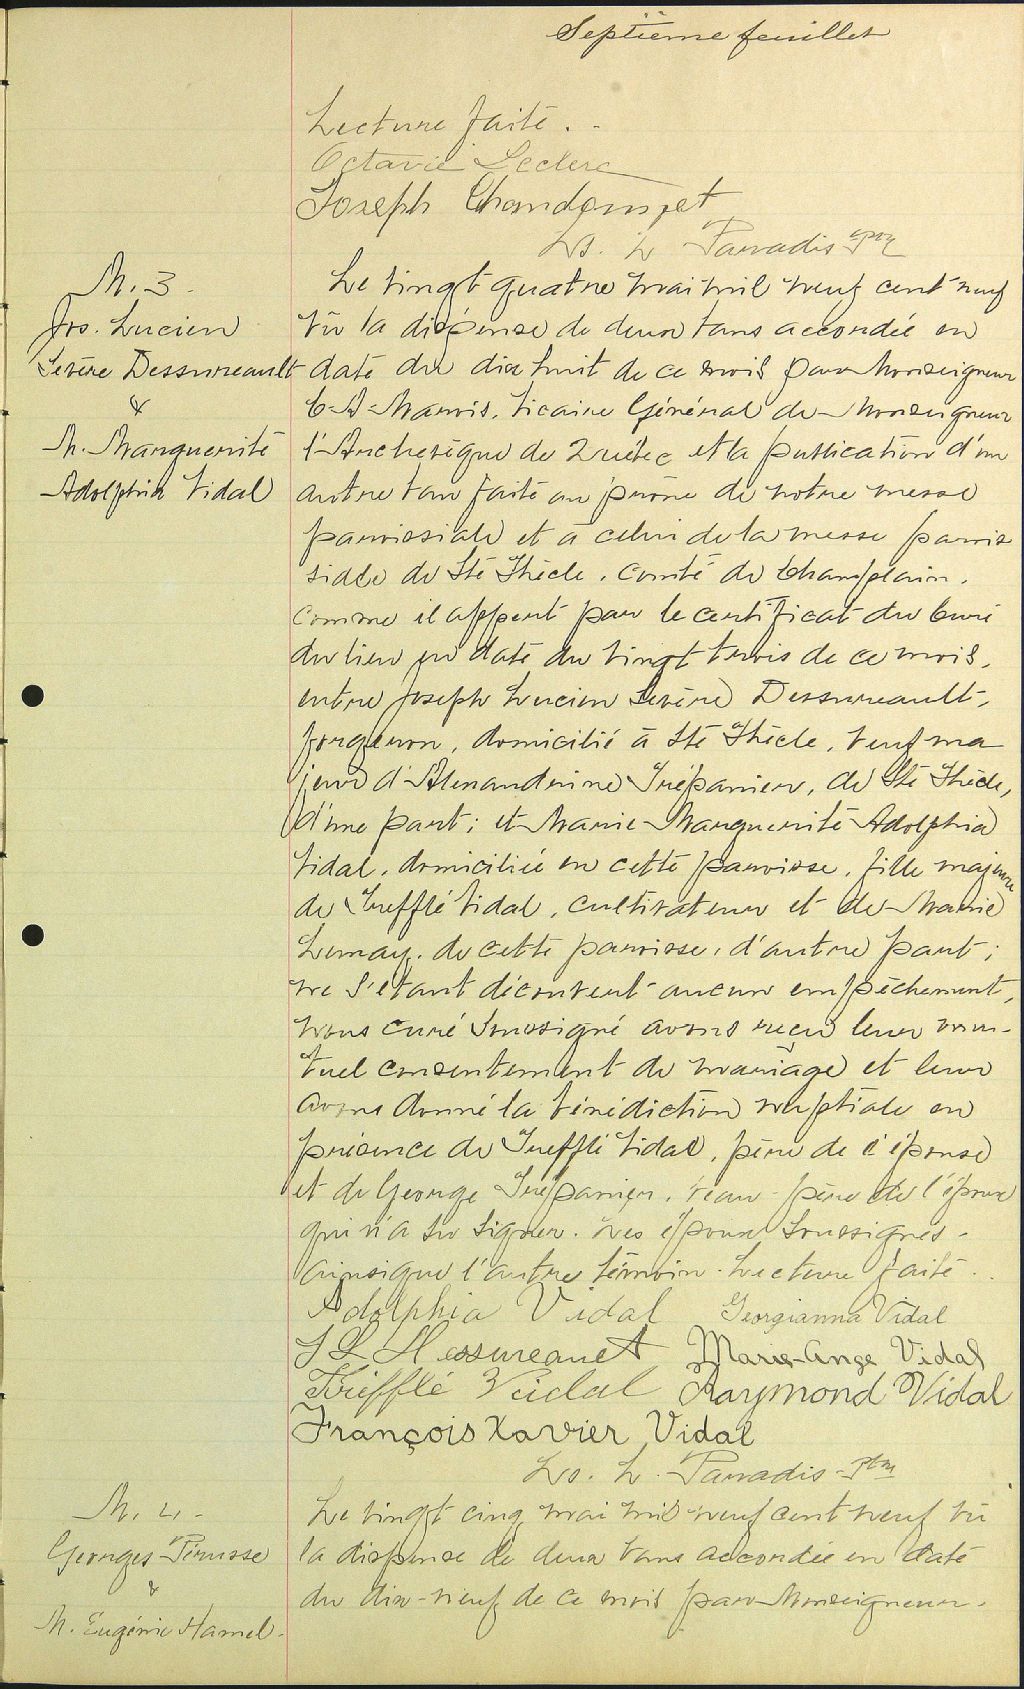 Septième feuillet
Lecture faite.
Octavie Leclerc
Joseph
Ls. L. Paradis ptre
M. 3.
Jos. Lucien
Sévère Dessureault
&
M. Marguerite
Adolphia Vidal
Le vingt quatre mai mil neuf cent neuf
vû la dispense de deux bans accordée en
date du dix huit de ce mois par Monseigneur
C-A-Marois, Vicaire Général de Monseigneur
l'Archevêque de Québec et la publication d'un
autre ban faite au prône de notre messe
paroissiale et à celui de la messe parois
siale de Ste Thècle, comté de Champlain,
comme il appert par le certificat du Curé
du lieu en date du vingt trois de ce mois,
entre Joseph Lucien Sévère Dessureault,
forgeron, domicilié à Ste Thècle, veuf ma
jeur d'Alexandrine Trépanier, de Ste Thècle,
d'une part; et Marie Marguerite Adolphia
Vidal, domiciliée en cette paroisse, fille majeure
de Trefflé Vidal, cultivateur et de Marie
Lemay, de cette paroisse, d'autre part;
ne s'étant découvert aucun empêchement,
nous curé soussigné avons reçu leur mu-
tuel consentement de mariage et leur
avons donné la bénédiction nuptiale en
présence de Trefflé Vidal, père de l'épouse
et de George Trépanier, beau-père de l'époux
qui n'a su signer. Les époux soussignés
ainsi que l'autre témoin. Lecture faite.
Adolphia Vidal Georgianna Vidal
J L Dessureault Marie-Ange Vidal
Trifflé Vidal Raymond Vidal
François Xavier Vidal
Ls. L. Paradis ptre
M. 4.
Georges Perusse
&
M. Eugénie Hamel.
Le vingt cinq mai mil neuf cent neuf vû
la dispense de deux bans accordée en date
du dix-neuf de ce mois par Monseigneur